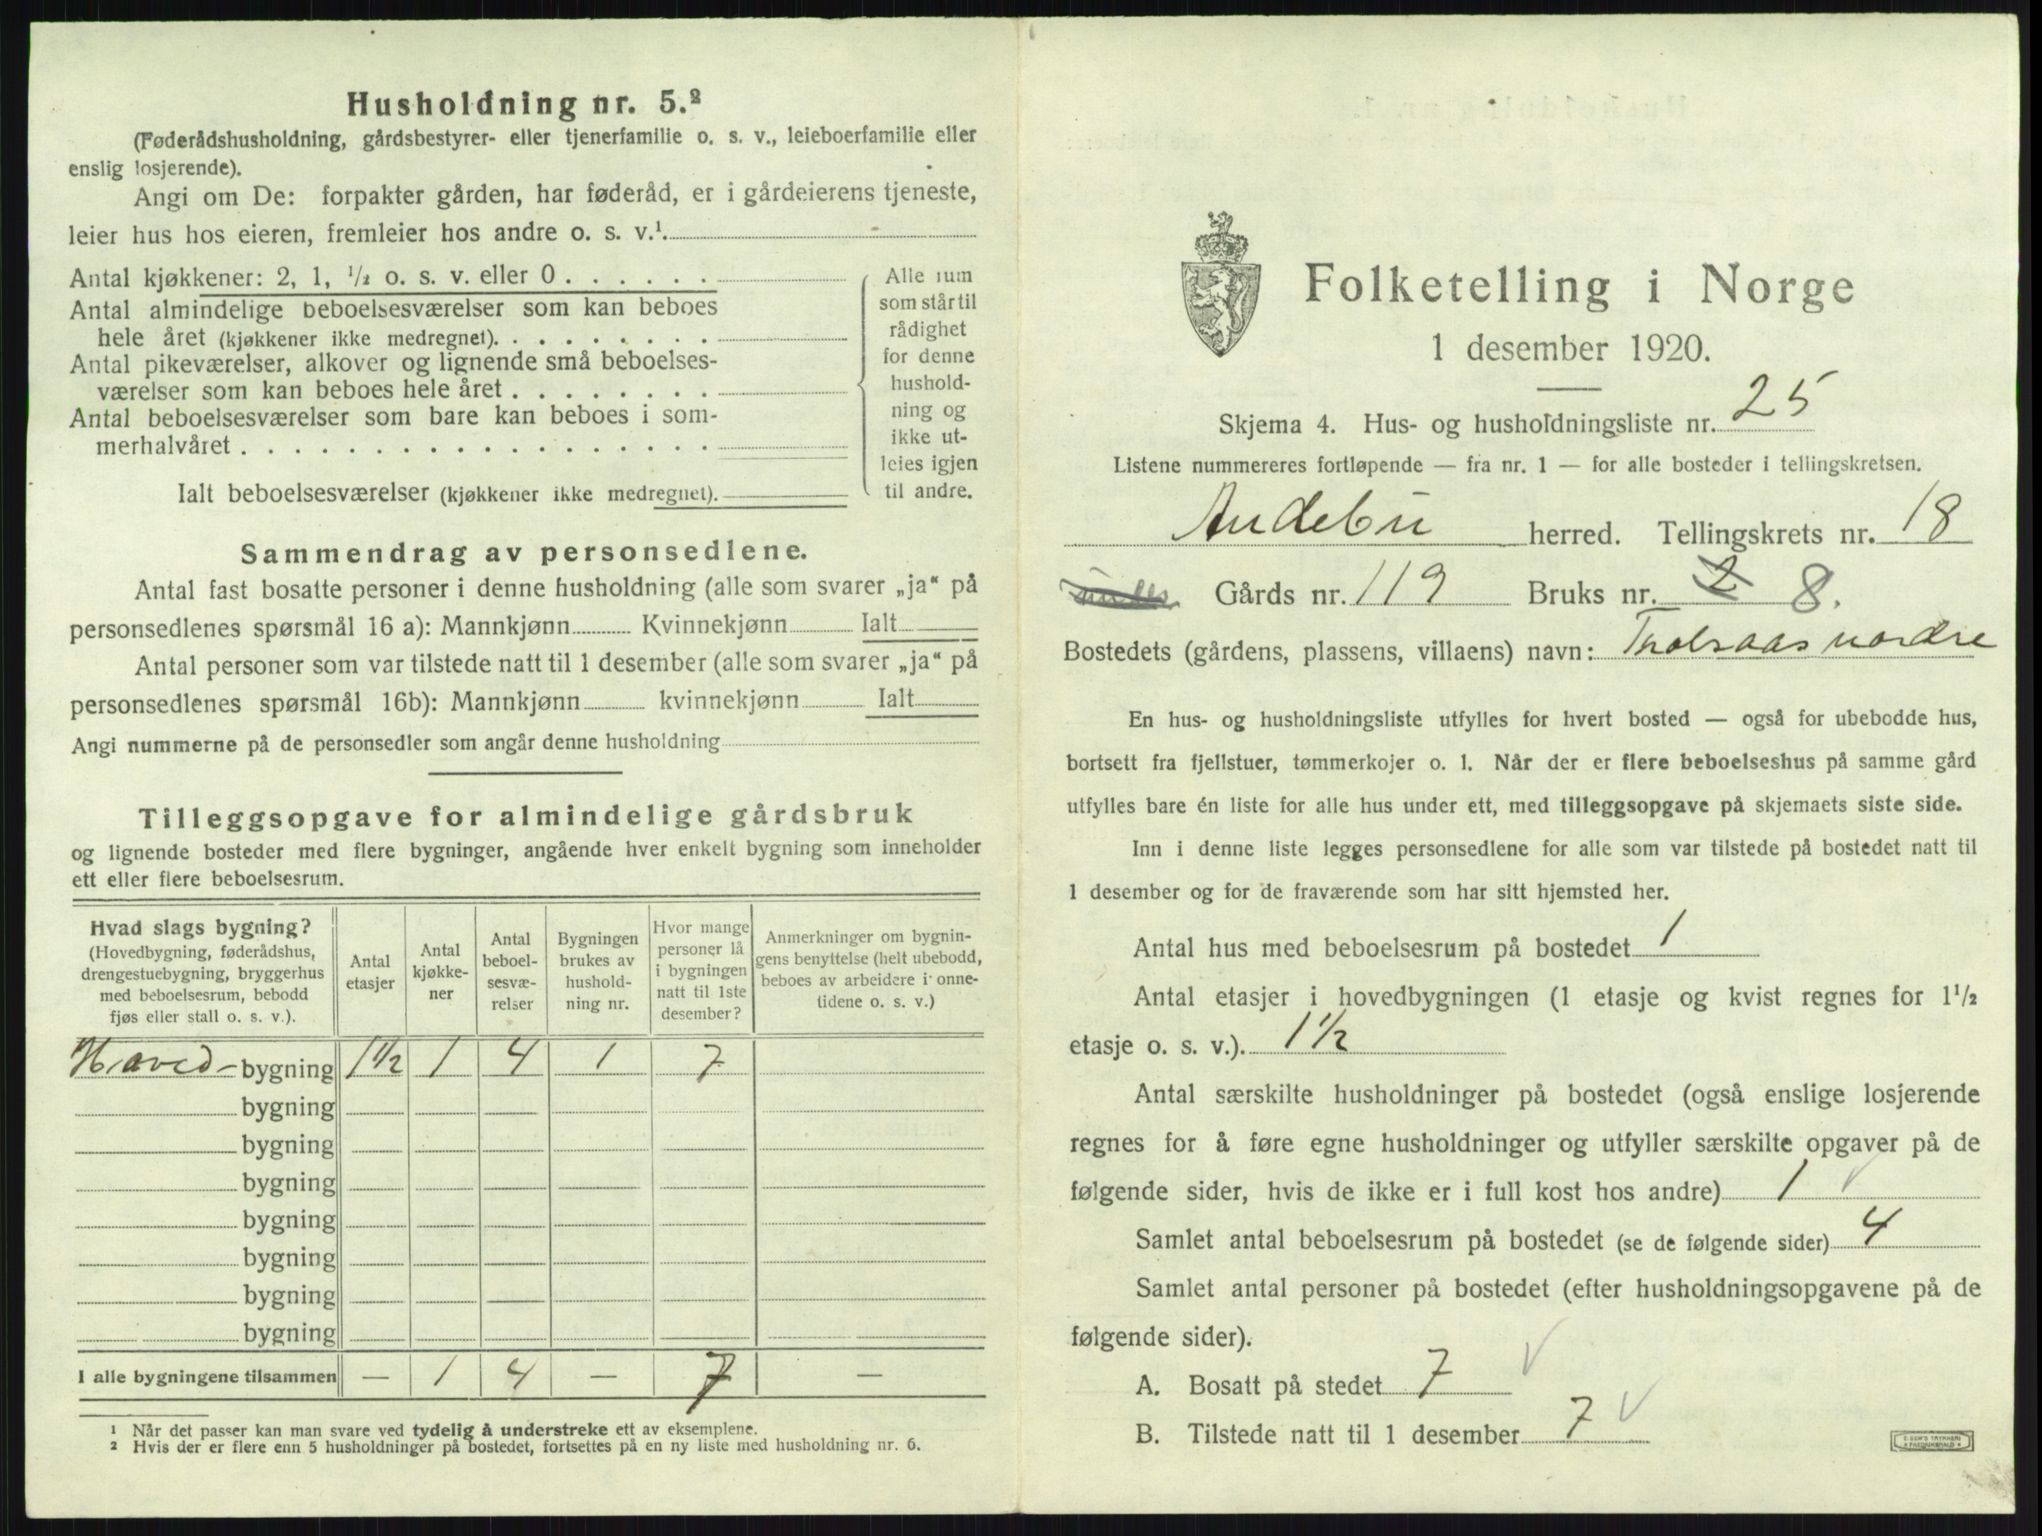 Husholdning nr. 5.²
(Føderådshusholdning, gårdsbestyrer- eller tjenerfamilie o. s. v., leieboerfamilie eller
enslig losjerende).
Angi om De: forpakter gården, har føderåd, er i gårdeierens tjeneste,
leier hus hos eieren, fremleier hos andre o. s. v.¹.
Antal kjøkkener: 2, 1, ½ o. s. v. eller 0
Antal almindelige beboelsesværelser som kan beboes
hele året (kjøkkener ikke medregnet).
Antal pikeværelser, alkover og lignende små beboelses-
værelser som kan beboes hele året
Antal beboelsesværelser som bare kan beboes i som-
merhalvåret
Ialt beboelsesværelser (kjøkkener ikke medregnet).
Alle rum
som står til
rådighet
for denne
hushold-
ning og
ikke ut-
leies igjen
til andre.
Sammendrag av personsedlene.
Antal fast bosatte personer i denne husholdning (alle som svarer „ja“ på
personsedlenes spørsmål 16 a): Mannkjønn Kvinnekjønn Ialt
Antal personer som var tilstede natt til 1 desember (alle som svarer „ja“ på
personsedlenes spørsmål 16b): Mannkjønn kvinnekjønn Ialt
Angi nummerne på de personsedler som angår denne husholdning
Tilleggsopgave for almindelige gårdsbruk
og lignende bosteder med flere bygninger, angående hver enkelt bygning som inneholder
ett eller flere beboelsesrum.
Hvad slags bygning?
(Hovedbygning, føderådshus,
drengestuebygning, bryggerhus
med beboelsesrum, bebodd
fjøs eller stall o. s. v.).
Antal
etasjer
Antal
kjøkke-
ner
Antal
beboel-
sesvæ-
relser
Bygningen
brukes av
hushold-
ning nr.
Hvor mange
personer lå
i bygningen
natt til 1ste
desember?
Anmerkninger om bygnin-
gens benyttelse (helt ubebodd,
beboes av arbeidere i onne-
tidene o. s. v.)
Hoved- bygning 1½ 1 4 1 7
bygning
bygning
bygning
bygning
bygning
bygning
bygning
I alle bygningene tilsammen — 1 4 — 7 —
¹ Når det passer kan man svare ved tydelig å understreke ett av eksemplene.
² Hvis der er flere enn 5 husholdninger på bostedet, fortsettes på en ny liste med husholdning nr. 6.
Folketelling i Norge
1 desember 1920.
Skjema 4. Hus- og husholdningsliste nr. 25
Listene nummereres fortløpende — fra nr. 1 — for alle bosteder i tellingskretsen.
Andebu herred. Tellingskrets nr. 18
Gårds nr. 119 Bruks nr. 2 8.
Bostedets (gårdens, plassens, villaens) navn: Trolsaas nordre
En hus- og husholdningsliste utfylles for hvert bosted — også for ubebodde hus,
bortsett fra fjellstuer, tømmerkojer o. l. Når der er flere beboelseshus på samme gård
utfylles bare én liste for alle hus under ett, med tilleggsopgave på skjemaets siste side.
Inn i denne liste legges personsedlene for alle som var tilstede på bostedet natt til
1 desember og for de fraværende som har sitt hjemsted her.
Antal hus med beboelsesrum på bostedet 1
Antal etasjer i hovedbygningen (1 etasje og kvist regnes for 1½
etasje o. s. v.). 1½
Antal særskilte husholdninger på bostedet (også enslige losjerende
regnes for å føre egne husholdninger og utfyller særskilte opgaver på de
følgende sider, hvis de ikke er i full kost hos andre) 1
Samlet antal beboelsesrum på bostedet (se de følgende sider) 4
Samlet antal personer på bostedet (efter husholdningsopgavene på de
følgende sider).
A. Bosatt på stedet 7
B. Tilstede natt til 1 desember 7